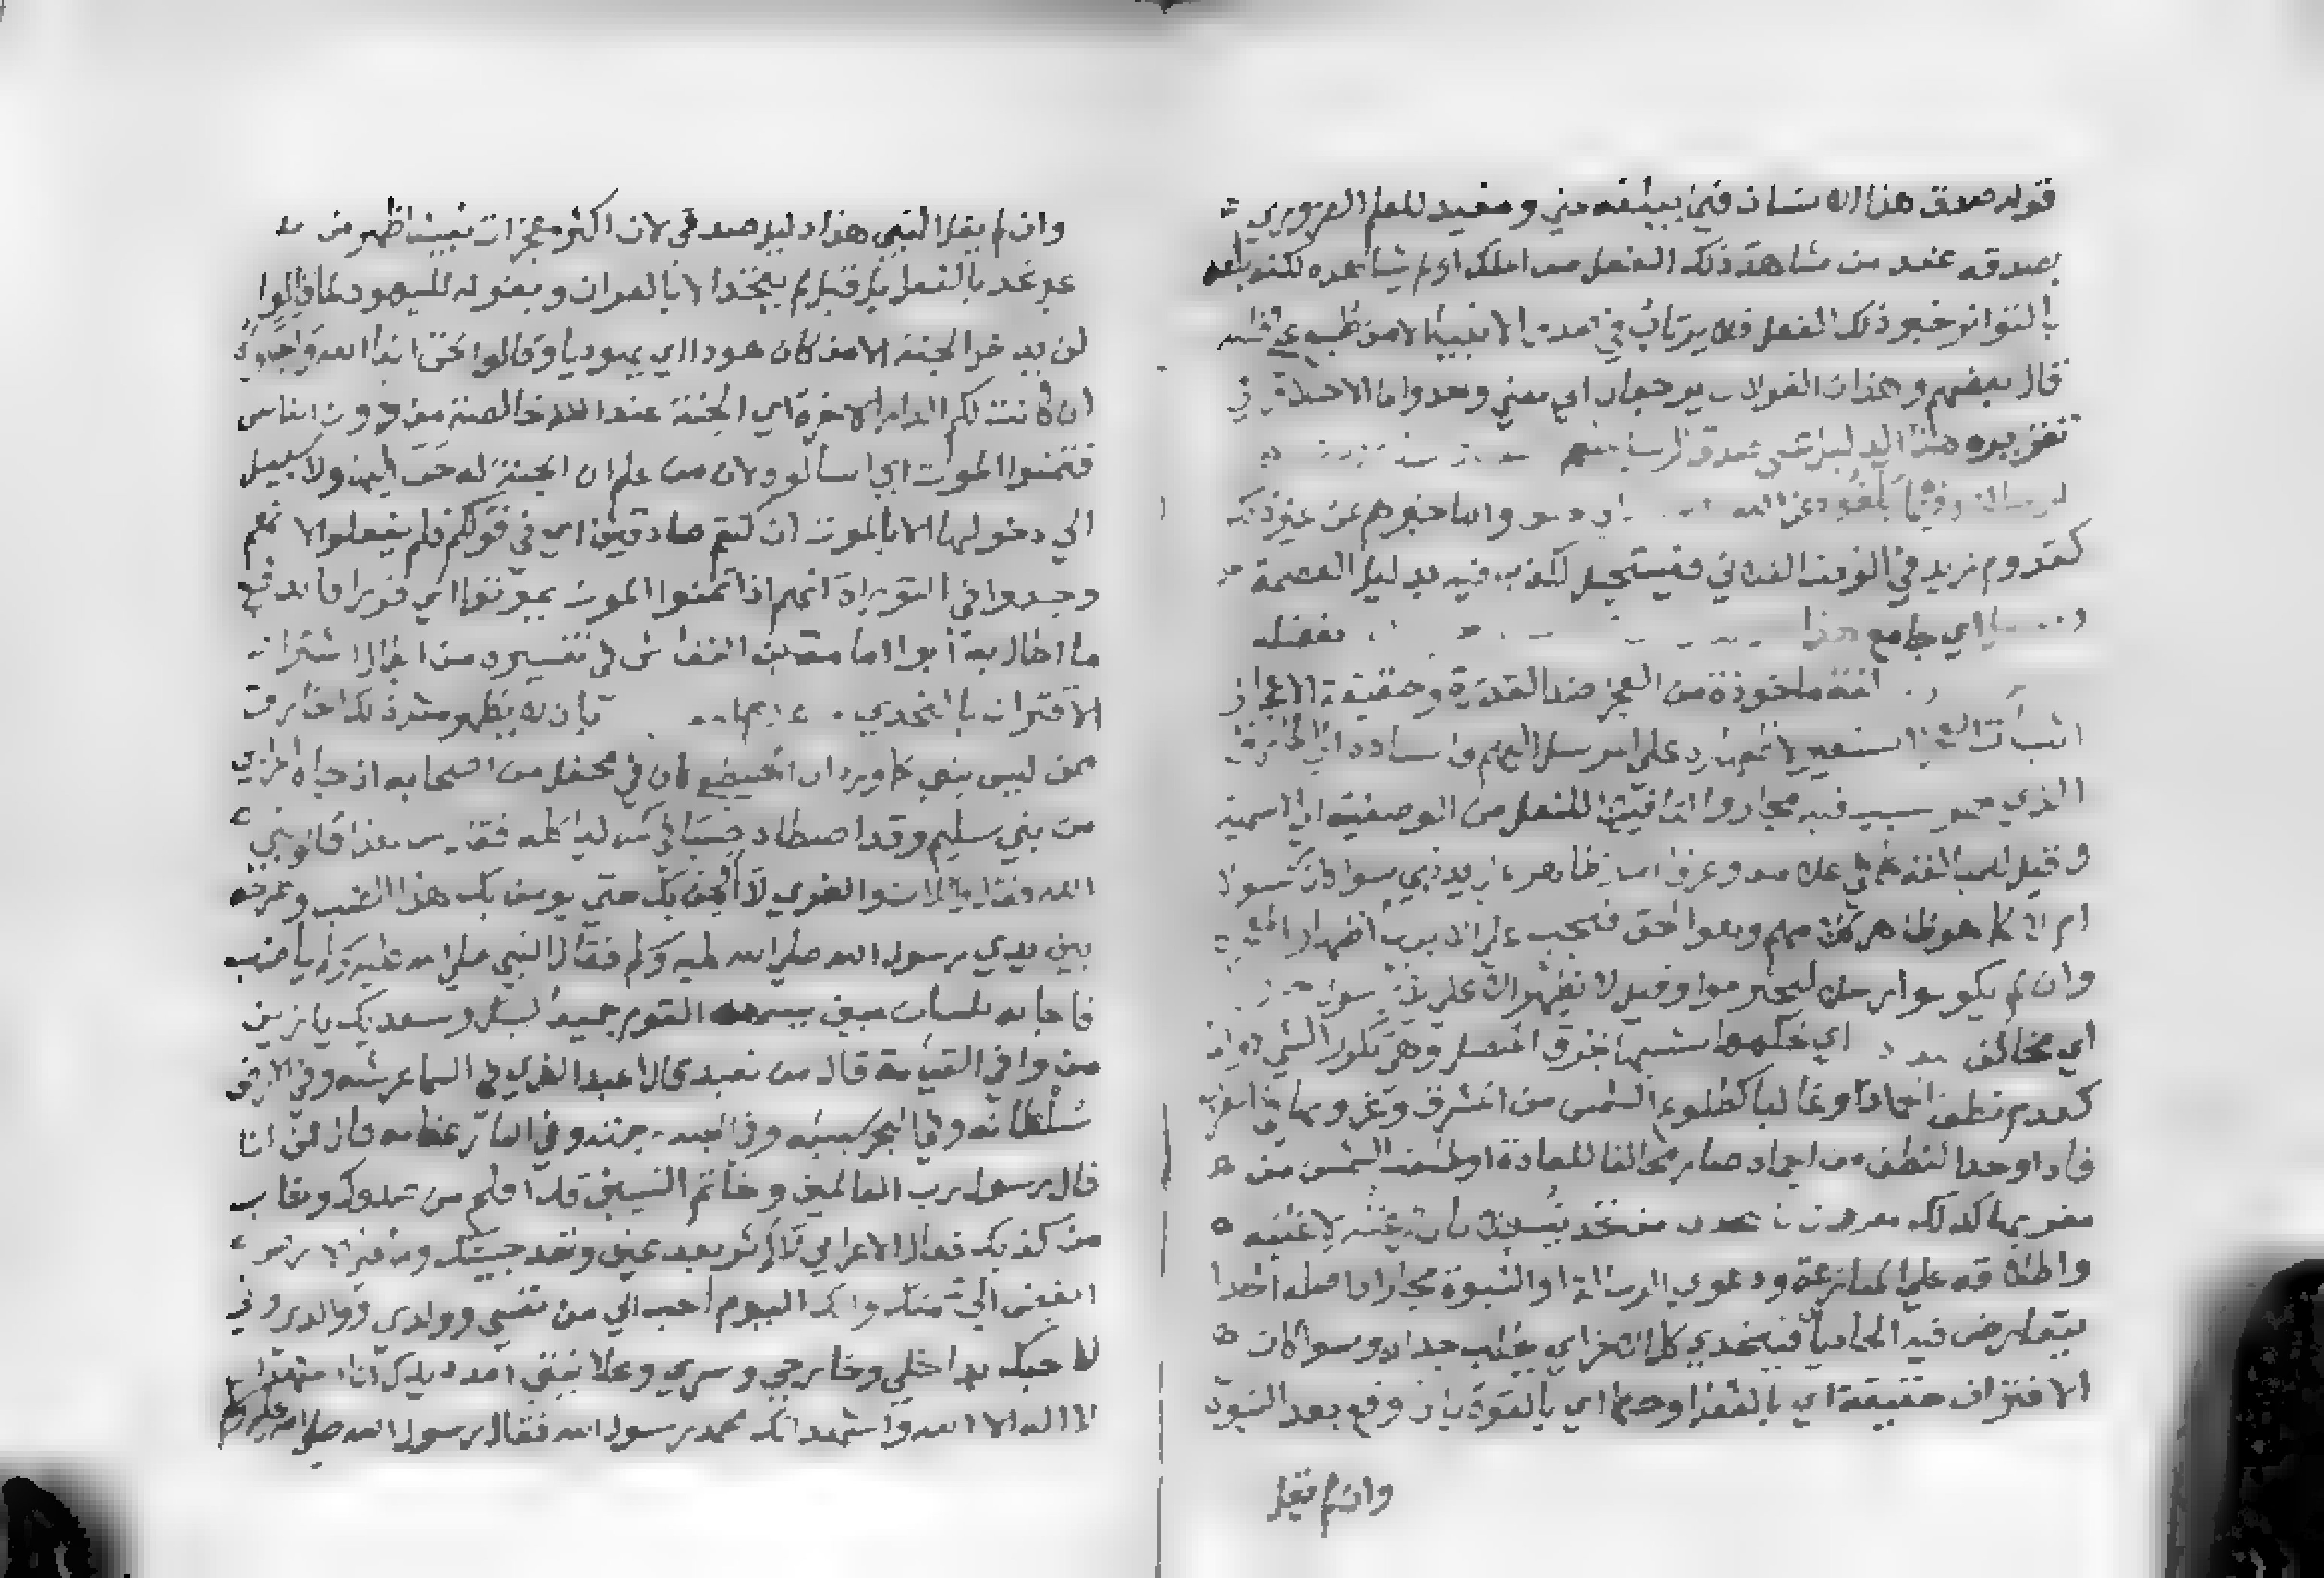 قوله صدق هذا الانسان في يبلغه عني ومفيد للعلم الضروري
بصدقه عند من شاهد ذلك الفعل من املك او لم يشاهده لكنه بلغه
بالتواتر خبر ذلك الفعل فلا يرتاب في صدق الانبيا الا من طبع على قلبه
قال بعضهم وهذان القولان يرجعان الي معني واحد وانما الاختلاف في
تقرير هذا الدليل على صدق الرسل
يبلغوه عن الله واما خبرهم عن غير ذلك
كقدوم زيد في الوقت الفلاني فيستحيل الكذب فيه بدليل العصمة
اي جامع هذا بفضله
لغة ماخوذة من العجز ضد القدرة وحقيقة الاعجاز
اثبات العجز
الذي هو سبب فيه مجازا والتا فيها للنقل من الوصفية الي الاسمية
وقيل للمبالغة كما في علامة وعرفا امر ظاهر على يد نبي سوا كان رسولا
ام لا كما هو ظاهر كلامهم وهو الحق فيجب على النبي اظهار
وان لم يكن رسولا وقيل لا يظهر الا على يد رسول
اي مخالف اي حكمها
كعدم نطق الجمادات وغالبا كطلوع الشمس من المشرق وغروبها في المغرب
فاذا وجد النطق من الجماد صار مخالفا للعادة او طلعت الشمس من
مغربها كذلك مقرون بالتحدي
واطلاقه على المنازعة ودعوي الرسالة او النبوة مجاز واصله الحدا
يتعارض فيه الحاديان فيتحدي كل الاخر اي يطلب حداه وسوا كان
الاقتران حقيقة اي بالفعل او حكما اي بالقوة بان وقع بعد النبوة
وان لم يقل
وان لم يقل النبي هذا دليل صدقي لان اكثر معجزات نبينا ظهر من
غير تحد بالفعل بل قيل لم يتحد الا بالقران وبقوله لليهود لما قالوا
لن يدخل الجنة الا من كان هودا اي يهوديا وقالوا نحن ابناء الله واحباؤه
ان كانت لكم الدار الاخرة اي الجنة عند الله خالصة من دون الناس
فتمنوا الموت اي اسالوه لان من علم ان الجنة له حن اليها ولا سبيل
الي دخولها الا بالموت ان كنتم صادقين اي في قولكم فلم يفعلوا لانهم
وجدوا في التوراة انهم اذا تمنوا الموت يموتوا اي فورا فاندفع
ما اطال به ابو امامة بن النقاش في تفسيره من ابطال اشتراط
الاقتران بالتحدي بان لا يظهر مثل ذلك الخارق
ممن ليس بنبي كما ورد ان المصطفي كان في محفل من اصحابه اذ جاه اعرابي
من بني سليم وقد اصطاد ضبا في كمه لياكله فقال من هذا قالوا نبي
الله فقال واللات والعزي لا امنت بك حتى يومن بك هذا الضب وطرحه
بين يدي رسول الله صلى الله عليه وسلم فقال النبي صلى الله عليه وسلم يا ضب
فاجابه بلسان مبين يسمعه القوم جميعا لبيك وسعديك يا زين
من وافي القيامة قال من تعبد قال اعبد الذي في السما عرشه وفي الارض
سلطانه وفي البحر سبيله وفي الجنة رحمته وفي النار عقابه قال فمن انا
قال رسول رب العالمين وخاتم النبيين قد افلح من صدقك وخاب
من كذبك فقال الاعرابي لا اثر بعد عين ولقد جيتك وما على الارض
ابغض الي منك وانك اليوم احب الي من نفسي وولدي ووالدي وني
لاحبك بداخلي وخارجي وسري وعلانيتي امدد يدك انا اشهد ان
لا اله الا الله واشهد انك محمد رسول الله فقال رسول الله صلى الله عليه وسلم